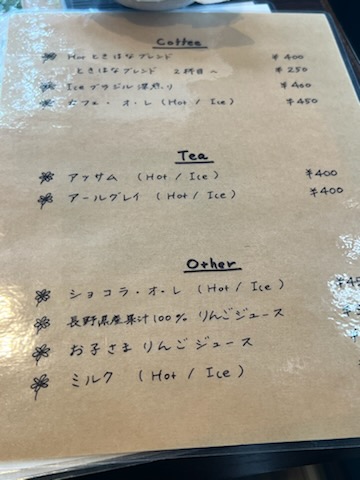 Coffee
Hot ときはなブレンド ¥400
ときはなブレンド 2杯目〜 ¥250
Ice ブラジル深煎り ¥400
カフェ・オ・レ (Hot / Ice) ¥450
Tea
アッサム (Hot / Ice) ¥400
アールグレイ (Hot / Ice) ¥400
Other
ショコラ・オ・レ (Hot / Ice)
長野県産果汁100% りんごジュース
お子さま りんごジュース
ミルク (Hot / Ice)